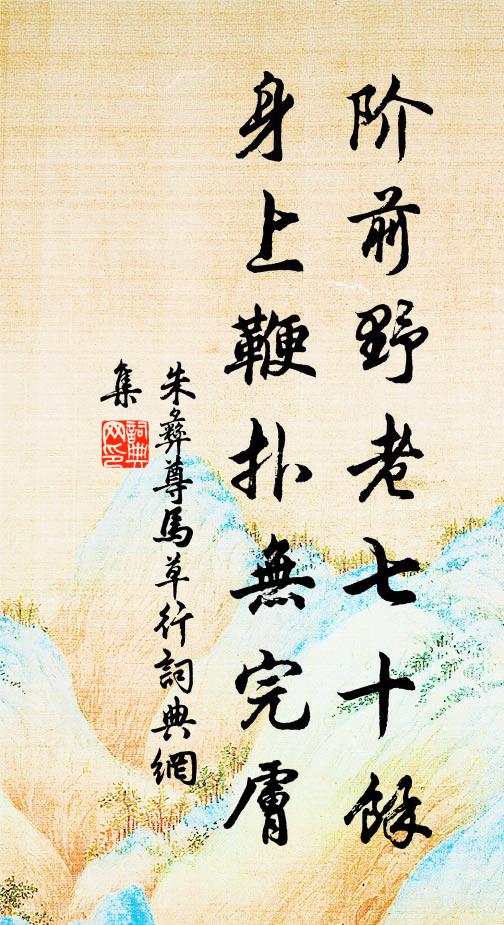 阶前野老七十餘
身上鞭扑無完膚
朱彝尊馬草行詞典網
集
詞典网印